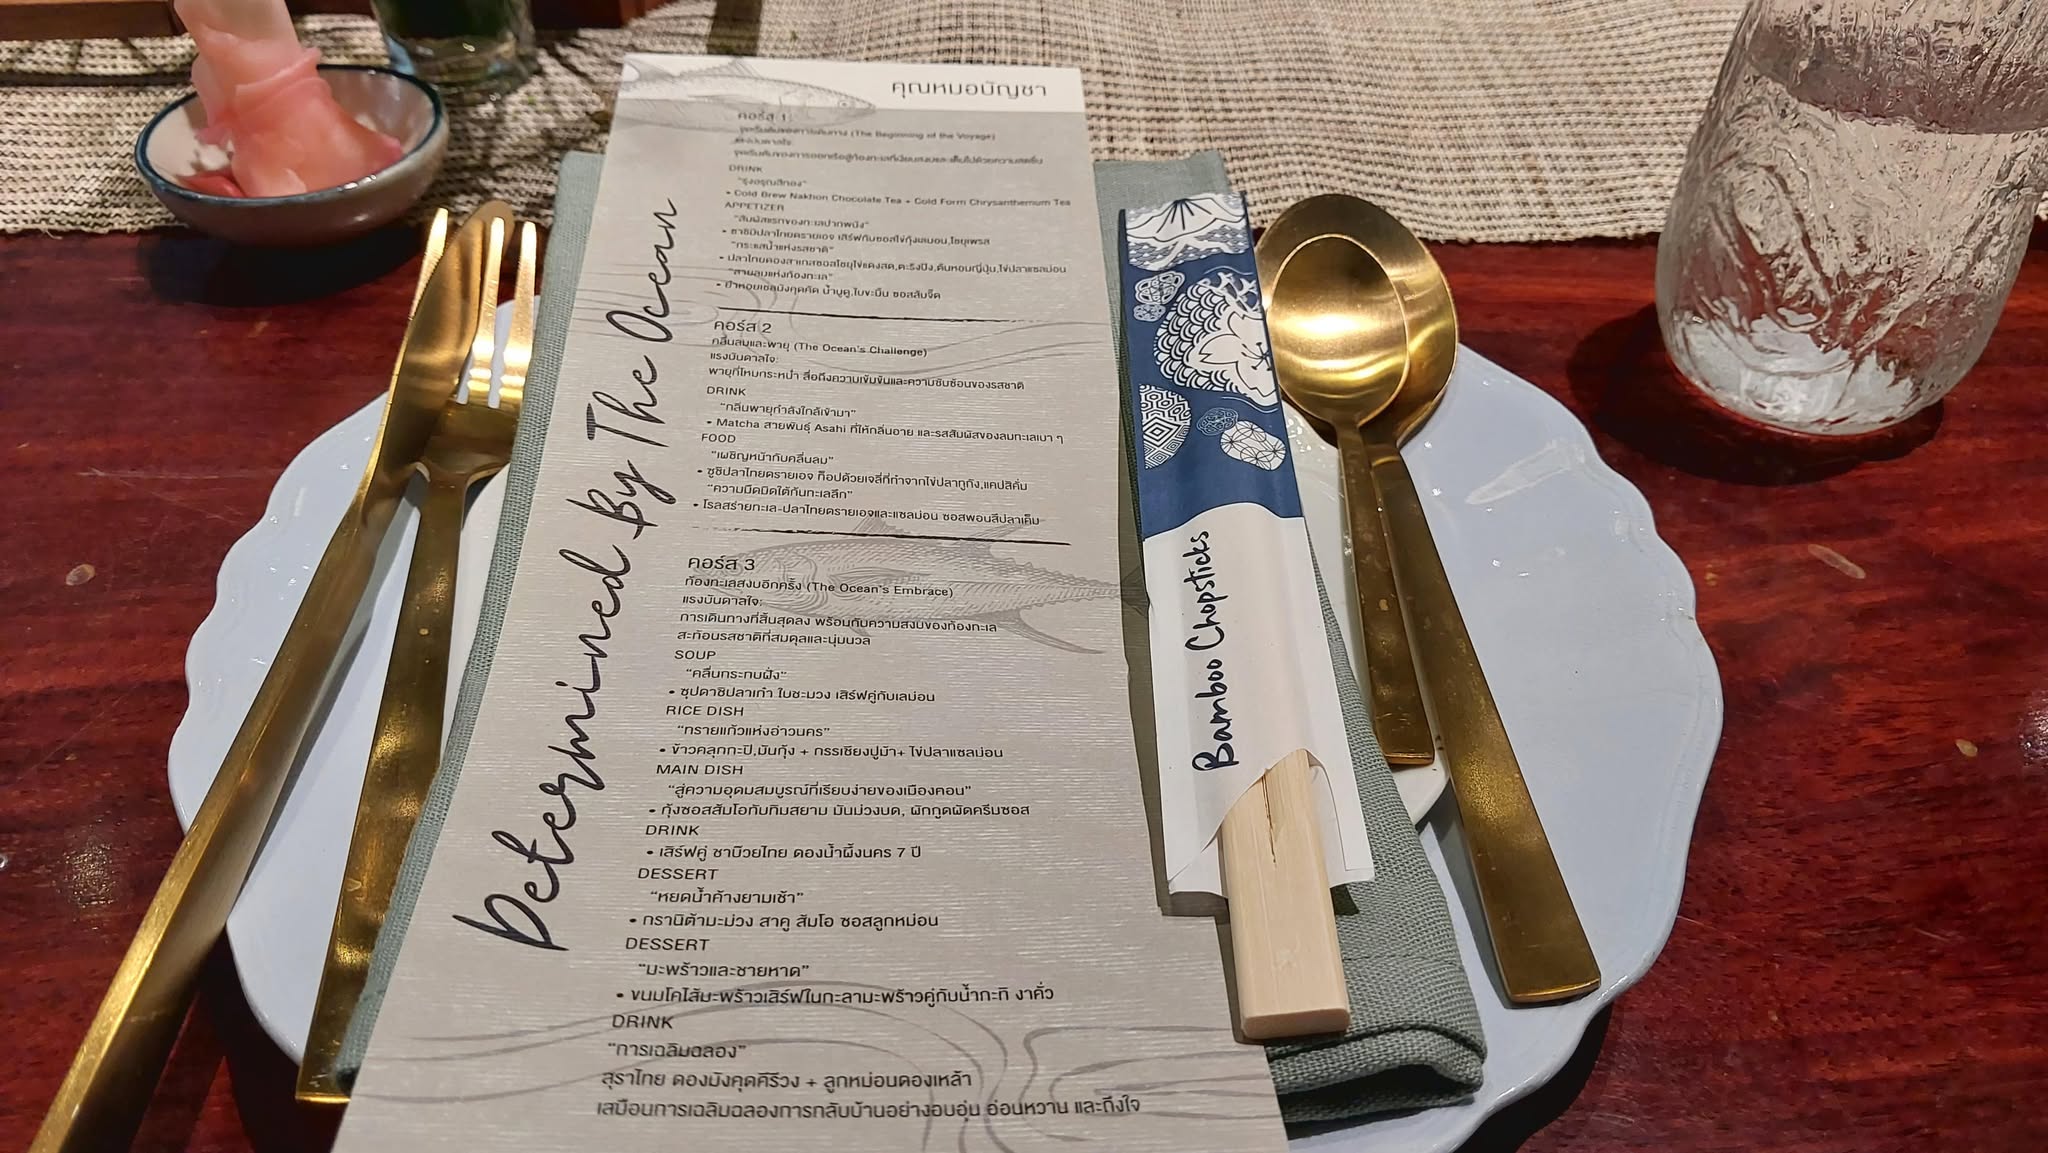 คุณหมอบัญชา
Determined By The Ocean
คอร์ส 1
จุดเริ่มต้นของการเดินทาง (The Beginning of the Voyage)
แรงบันดาลใจ:
จุดเริ่มต้นของการออกเรือสู่ท้องทะเลที่เงียบสงบและเต็มไปด้วยความสดชื่น
DRINK
"รุ่งอรุณสีทอง"
• Cold Brew Nakhon Chocolate Tea + Cold Form Chrysanthemum Tea
APPETIZER
"สัมผัสแรกของทะเลปากพนัง"
• ซาชิมิปลาไทยดรายเอจ เสิร์ฟกับซอสไข่กุ้งเลมอน,โชยุเพรส
"กระแสน้ำแห่งรสชาติ"
• ปลาไทยดองสาเกสซอสโชยุไข่แดงสด,ตะริงปิง,ต้นหอมญี่ปุ่น,ไข่ปลาแซลม่อน
"สายลมแห่งท้องทะเล"
• ยำหอยเชลมังคุดคัด น้ำบูดู,ใบขะมิ้น ซอสส้มจี๊ด
คอร์ส 2
คลื่นลมและพายุ (The Ocean's Challenge)
แรงบันดาลใจ:
พายุที่โหมกระหน่ำ สื่อถึงความเข้มข้นและความซับซ้อนของรสชาติ
DRINK
"กลิ่นพายุกำลังใกล้เข้ามา"
• Matcha สายพันธุ์ Asahi ที่ให้กลิ่นอาย และรสสัมผัสของลมทะเลเบา ๆ
FOOD
"เผชิญหน้ากับคลื่นลม"
• ซูชิปลาไทยดรายเอจ ท็อปด้วยเจลี่ที่ทำจากไข่ปลาทูกัง,แคปสิคั่ม
"ความมืดมิดใต้ก้นทะเลลึก"
• โรลสร่ายทะเล-ปลาไทยดรายเอจและแซลม่อน ซอสพอนสึปลาเค็ม
คอร์ส 3
ท้องทะเลสงบอีกครั้ง (The Ocean's Embrace)
แรงบันดาลใจ:
การเดินทางที่สิ้นสุดลง พร้อมกับความสงบของท้องทะเล
สะท้อนรสชาติที่สมดุลและนุ่มนวล
SOUP
"คลื่นกระทบฝั่ง"
• ซุปดาชิปลาเก๋า ใบชะมวง เสิร์ฟคู่กับเลม่อน
RICE DISH
"ทรายแก้วแห่งอ่าวนคร"
• ข้าวคลุกกะปิ,มันกุ้ง + กรรเชียงปูม้า+ ไข่ปลาแซลม่อน
MAIN DISH
"สู่ความอุดมสมบูรณ์ที่เรียบง่ายของเมืองคอน"
• กุ้งซอสส้มโอทับทิมสยาม มันม่วงบด, ผักกูดผัดครีมซอส
DRINK
• เสิร์ฟคู่ ชาบ๊วยไทย ดองน้ำผึ้งนคร 7 ปี
DESSERT
"หยดน้ำค้างยามเช้า"
• กรานิต้ามะม่วง สาคู ส้มโอ ซอสลูกหม่อน
DESSERT
"มะพร้าวและชายหาด"
• ขนมโคไส้มะพร้าวเสิร์ฟในกะลามะพร้าวคู่กับน้ำกะทิ งาคั่ว
DRINK
"การเฉลิมฉลอง"
สุราไทย ดองมังคุดคีรีวง + ลูกหม่อนดองเหล้า
เสมือนการเฉลิมฉลองการกลับบ้านอย่างอบอุ่น อ่อนหวาน และถึงใจ
Bamboo Chopsticks